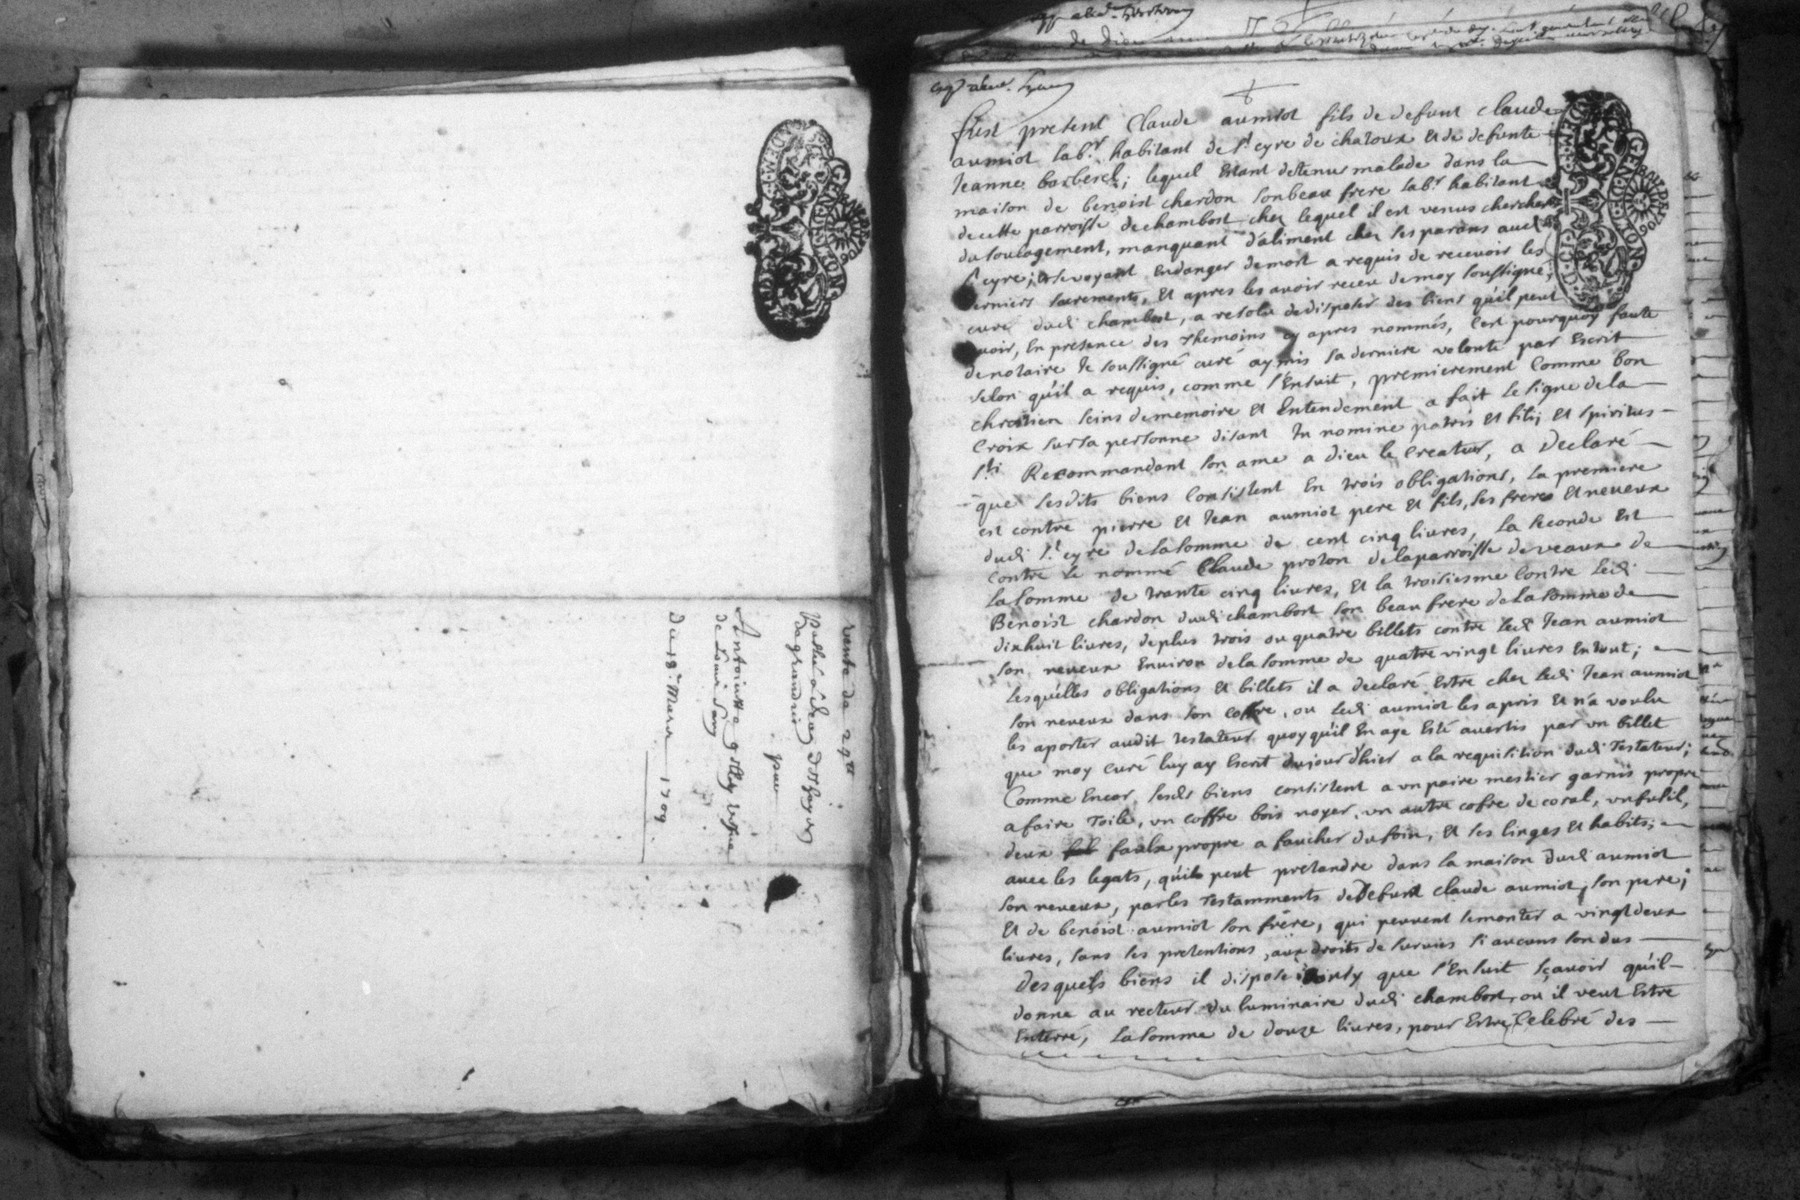 vente de 29lt
passée a
dagrandris
par
Antoinette
de
Du 18e Mars 1709.
fust present Claude aumiot fils de defunt Claude
aumiot labr. habitant de st cyre de chatoux et de defunte
Jeanne barberet; lequel estant detenus malade dans la
maison de benoist chardon son beau frere labr habitant
de cette parroisse de chambost chez lequel il est venus chercher
du soulagement, manquant d'aliment chez ses parans aud
st cyre; et se voyant en danger de mort a requis de recevoir les
derniers sacrements, et apres les avoir receu de moy soussigné,
curé dudi chambost, a resolu de disposer des biens qu'il peut
avoir, en presence des themoins cy apres nommés, c'est pourquoy faute
de notaire Je soussigné curé ay mis sa derniere volonté par escrit
selon qu'il a requis, comme s'ensuit, premierement comme bon
chrestien seins de memoire et entendement a fait le signe de la
croix sur sa personne disant In nomine patris et filij et spiritus
sti Recommandant son ame a dieu le createur, a declaré
que sesdits biens consistent en trois obligations, la premiere
est contre pierre et Jean aumiot pere et fils, ses freres et neveux
dudi st cyre de la somme de cent cinq livres, la seconde est
contre le nommé Claude proton de la parroisse de veaux de
la somme de trante cinq livres, et la troisiesme contre ledi
Benoist chardon dudi chambost son beau frere de la somme de
dixhuit livres, de plus trois ou quatre billets contre ledi Jean aumiot
son neveux environ de la somme de quatre vingt livres en tout;
lesquelles obligations et billets il a declaré estre chez ledi Jean aumiot
son neveux dans son coffre, ou ledi aumiot les a pris et n'a voulu
les aporter audit testateur quoy qu'il en aye esté avertis par un billet
que moy curé luy ay escrit aujourdhier a la requisition dudi testateur;
Comme encor, sesds biens consistent a un paire mestier garnis propre
a faire toile, un coffre bois noyer, un autre cofre de coral, un fusil,
deux faulx propre a faucher du foin, et ses linges et habits;
avec les legats, qu'il peut pretandre dans la maison dudi aumiot
son neveux, par les testamments de defunt claude aumiot, son pere;
et de benoist aumiot son frere, qui peuvent se monter a vingt deux
livres, sans ses pretentions, aux droits de survies si aucuns son dus
Desquels biens il dispose ainsy que s'ensuit sçavoir qu'il
donne au recteur du luminaire dudi chambost, ou il veut estre
enterré, la somme de douze livres, pour estre celebré des